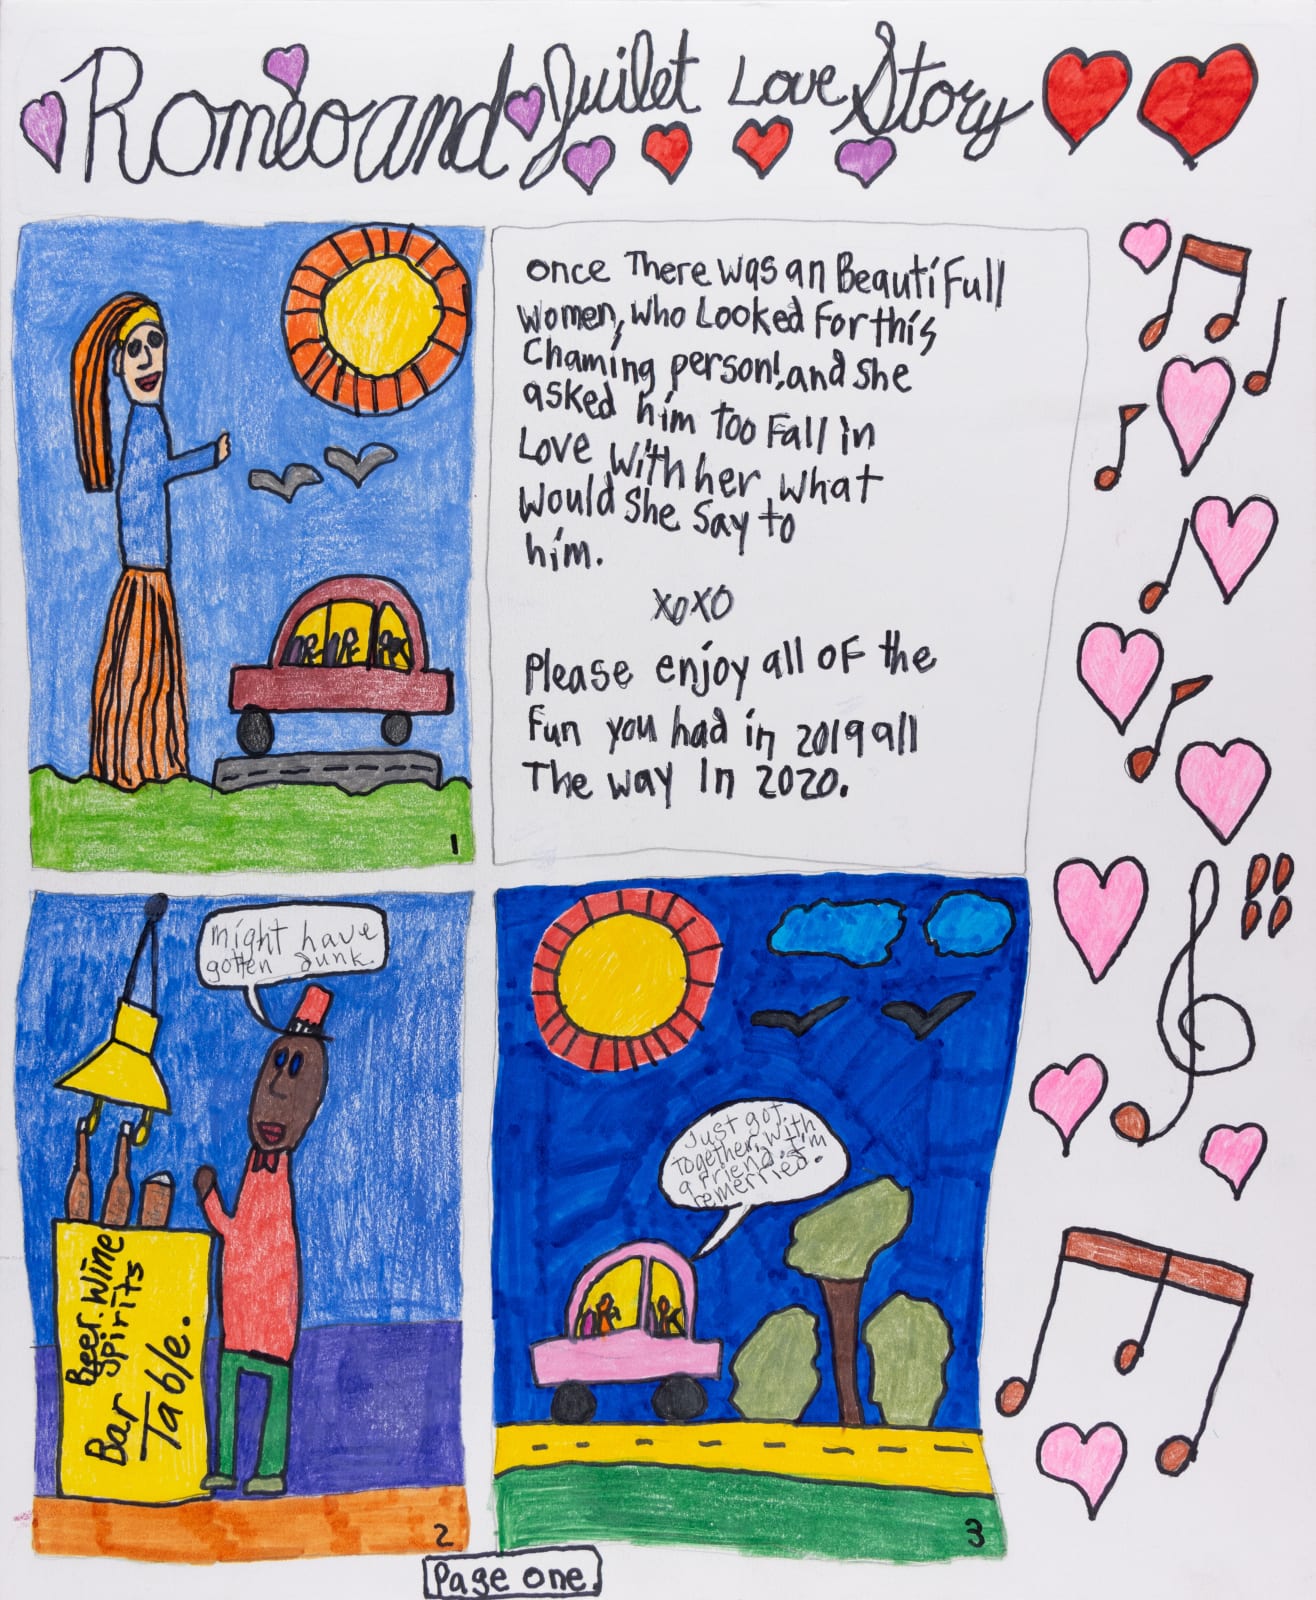 Romeo and Juilet Love Story
once There was an Beautifull
women, who Looked For this
Chaming person!, and she
asked him too Fall in
Love with her, what
would she say to
him.
xoxo
Please enjoy all of the
Fun you had in 2019 all
The way In 2020.
1
might have
gotten dunk.
Beer. Wine
Spirits
Bar Table.
2
Just got
together, with
a friend. I'm
remerried.
3
Page one.